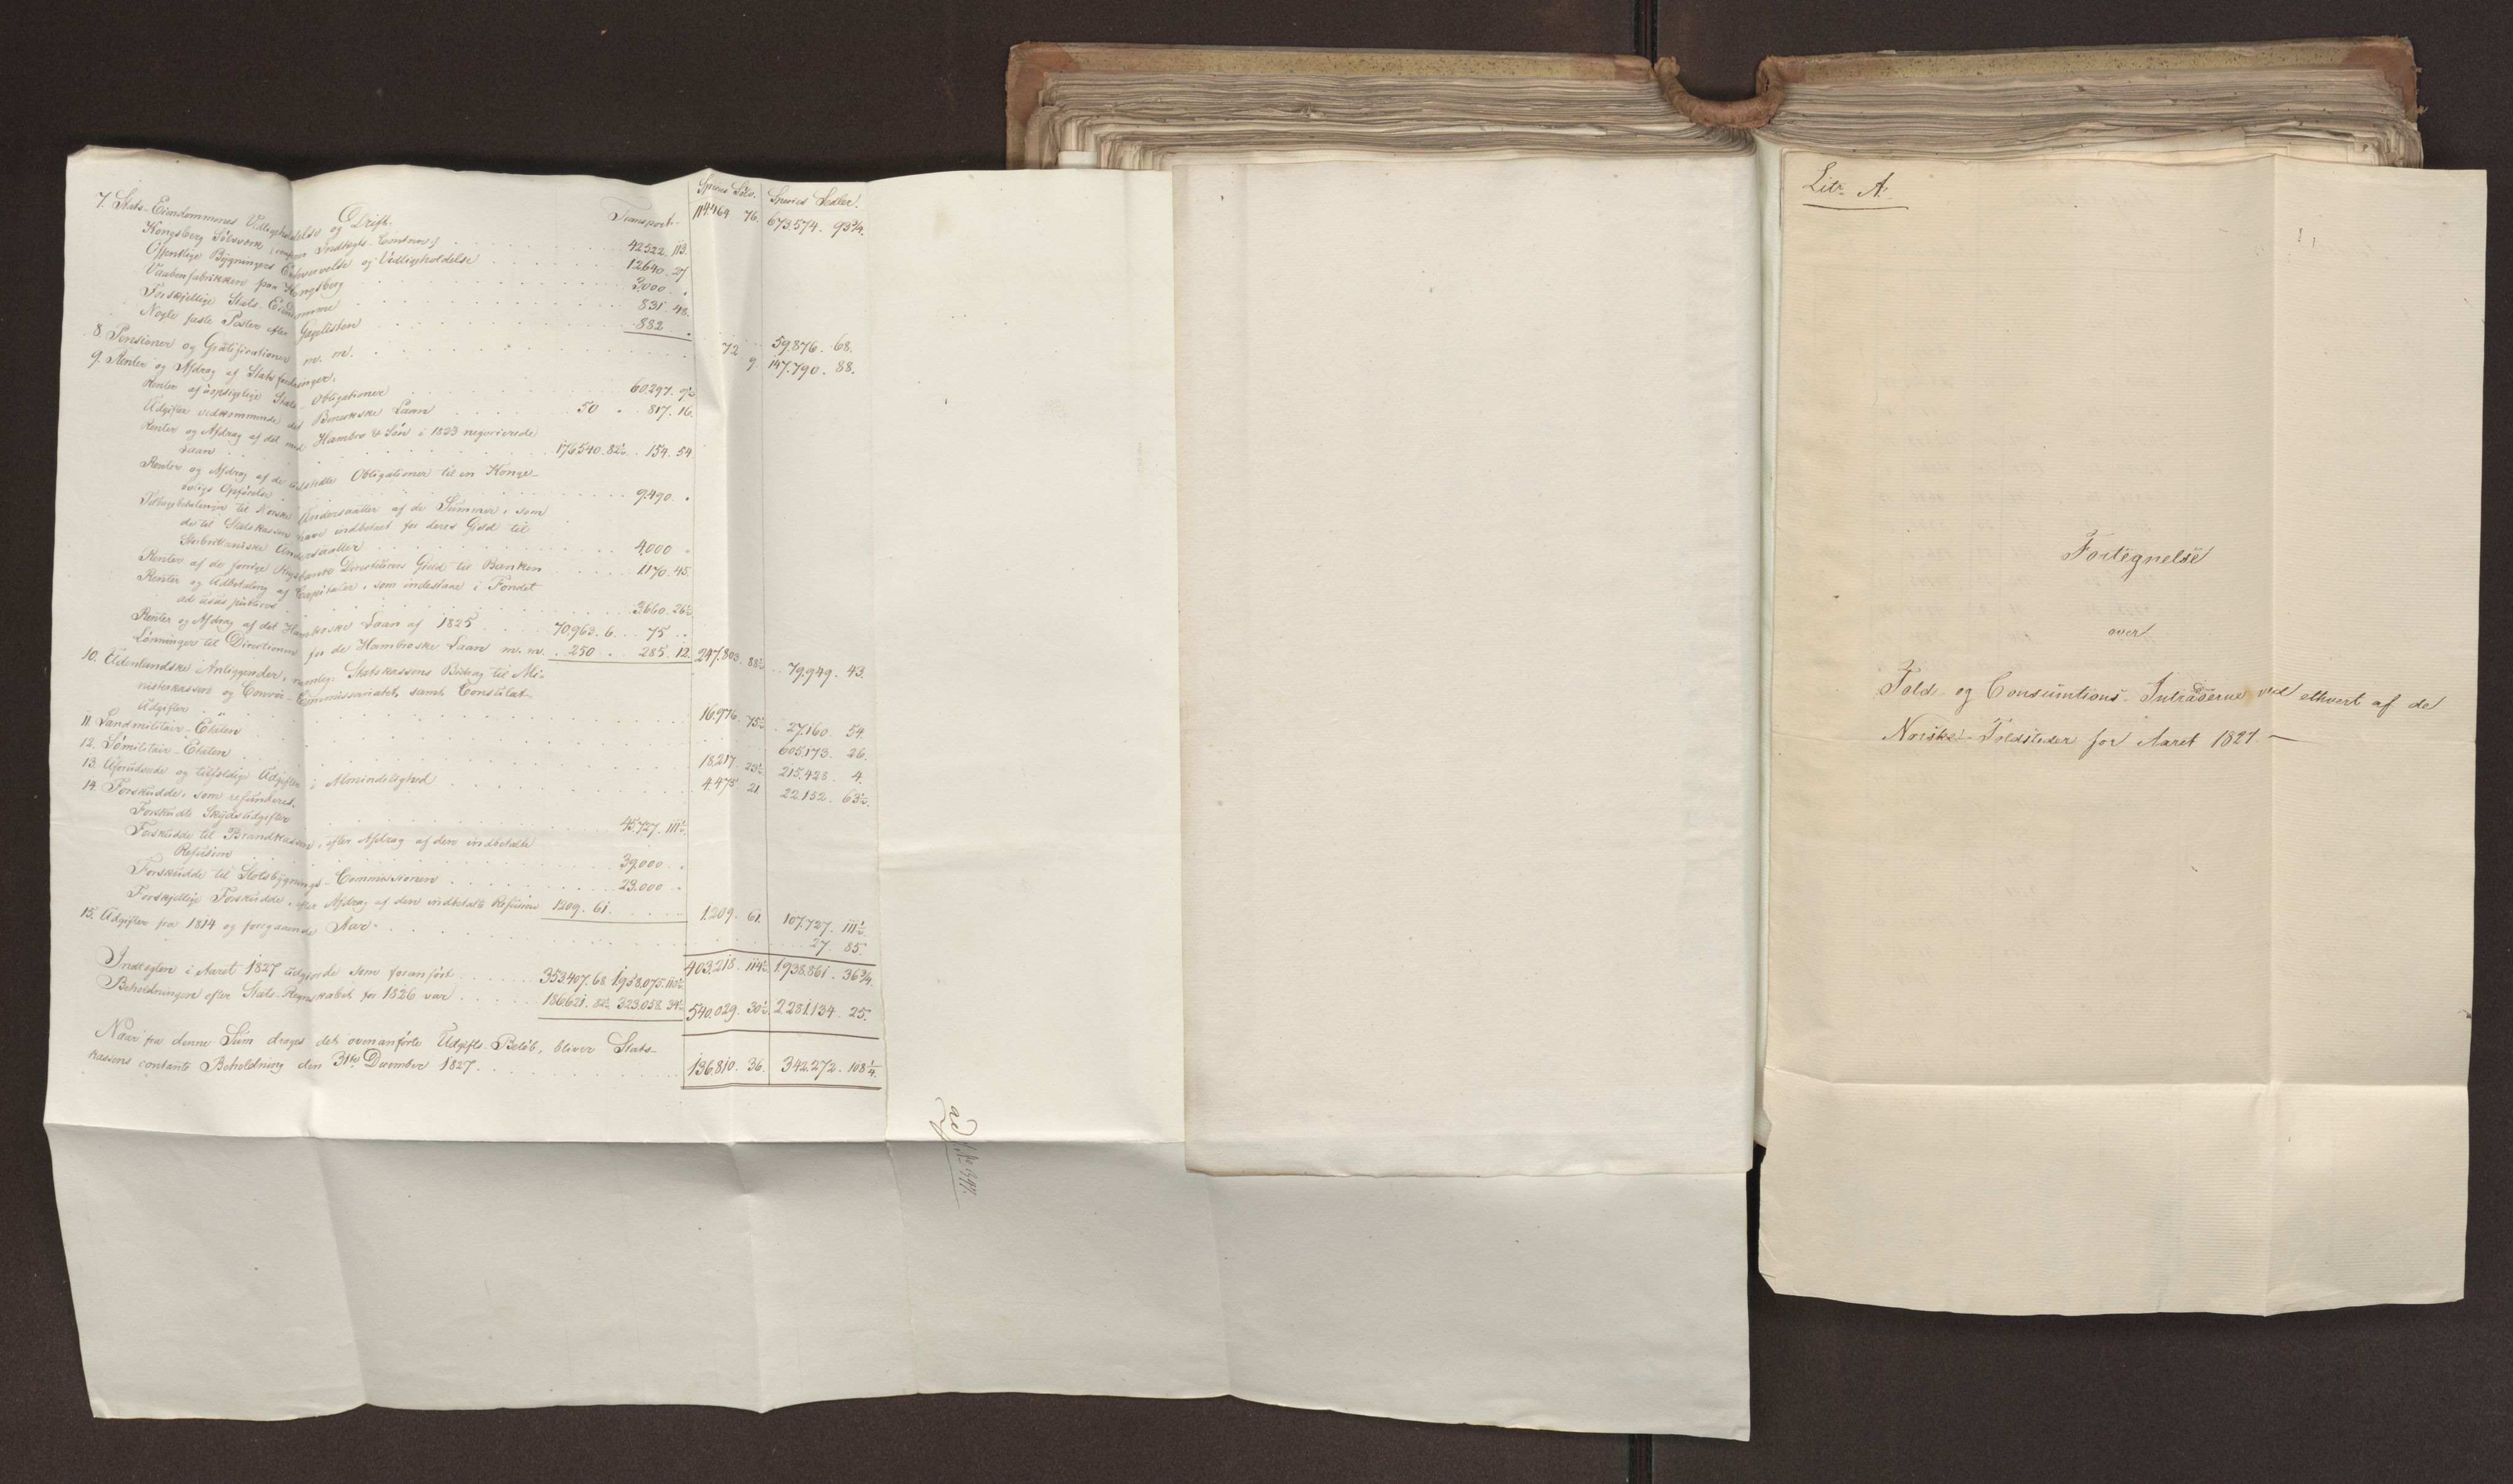 Species Sølv. Species Sedler.
Transport. 114.464 76. 673.574. 93 3/4.
7. Stats-Eiendommenes Vedligeholdelse og Drift.
Kongsberg Sølvværk (confr. Indtægts-Contoen) . . . 42522. 113.
Offentlige Bygningers Erhvervelse og Vedligeholdelse . . . 12640. 27.
Vaabenfabrikken paa Kongsberg . . . 3.000 .
Forskjellige Stats-Eiendomme . . . 831. 48.
Nogle faste Poster efter Gagelisten . . . 882 .
72 59.876. 68.
8. Pensioner og Gratificationer m. m. . . . 9. 147.790. 88.
9. Renter og Afdrag af Stats fordringer.
Renter af uopsigelige Stats-Obligationer . . . 60.297. 9½
Udgifter vedkommende det Beneckske Laan . . . 50 . 817. 16.
Renter og Afdrag af det med Hambro & Søn i 1823 negocierede
Laan . . . 176.540. 82½ . 154. 54
Renter og Afdrag af de udstedte Obligationer til en Konge-
boligs Opførelse . . . 9.490. .
Tilbagebetalinger til Norske Undersaatter af de Summer, som
de til Statskassen have indbetalt for deres Gjeld til
Storbritaniske Undersaatter . . . 4.000 .
Renter af de forrige Rigsbank Directeurers Gjeld til Banken . . . 1.170. 45.
Renter og Udbetaling af Capitaler, som indestaae i Fondet
ad usus publicos . . . 3.660. 26½
Renter og Afdrag af det Hambroske Laan af 1825 . . . 70.963. 6. . . 75 . .
Lønninger til Directionen for de Hambroske Laan m. m. . 250 . . 285. 12. 247.803. 88½ . 79.949. 43.
10. Udenlandske Anliggender, nemlig: Statskassens Bidrag til Mi-
nisterkassen og Convoi-Commissariatet, samt Consulat-
Udgifter . . . 16.976. 75½ . 27.160. 54.
11. Landmilitair-Etaten . . . 605.173. 26.
12. Sømilitair-Etaten . . . 18.217. 23½. 215.428. 4.
13. Uforudseede og tilfældige Udgifter i Almindelighed . . . 4.475 21. 22.152. 63½.
14. Forskudde, som refunderes.
Forskudte Skydsudgifter . . . 45.727. 111½.
Forskudde til Brandkassen, efter Afdrag af den indbetalte
Refusion . . . 39.000 .
Forskudde til Slotsbygnings-Commissionen . . . 23.000 .
Forskjellige Forskudde, efter Afdrag af den indbetalte Refusion 1209. 61. . . . 1.209. 61. 107.727. 111½.
15. Udgifter fra 1814 og foregaaende Aar. . . . 27. 85.
403.218. 114½ 1.938.861. 36 3/4.
Indtægten i Aaret 1827 udgjorde som foranført . . . 353.407. 68 1.958.075. 110½
Beholdningen efter Stats-Regnskabet for 1826 var . . . 186.621. 82½ 323.058. 34½ 540.029. 30½ 2.281.134. 25.
Naar fra denne Sum drages det ovenanførte Udgifts-Beløb, bliver Stats-
kassens contante Beholdning den 31te December 1827. . . . 136.810. 36. 342.272. 108 1/4.
ad No 1397.
Litr. A.
Fortegnelse
over
Told- og Consumtions-Intraderne ved ethvert af de
Norske Toldsteder for Aaret 1827. —